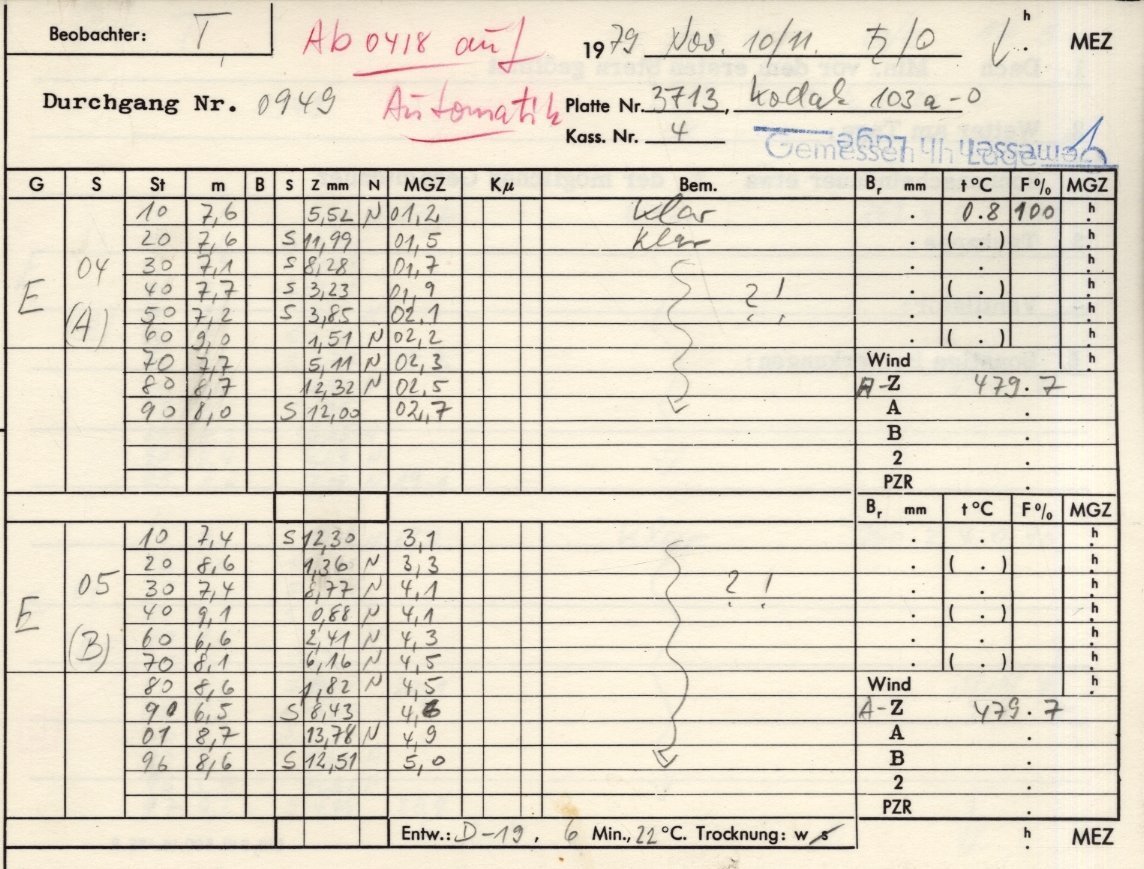 Beobachter: T Ab 0418 auf 1979 Nov. 10/11. ♄/☉ h MEZ
Durchgang Nr. 0949 Automatik Platte Nr. 3713, Kodak 103a-O
Kass. Nr. 4 Gemessen in Lage
G S St m B S Z mm N MGZ Kμ Bem. Br mm t °C F % MGZ
10 7,6 5,52 N 01,2 klar . 0.8 100 h
20 7,6 S 11,99 01,5 klar . ( . )
E 04 30 7,1 S 8,28 01,7 . . h
(A) 40 7,7 S 3,23 01,9 ? ! . ( . ) h
50 7,2 S 3,85 02,1 . . h
60 9,0 1,51 N 02,2 . ( . ) h
70 7,7 5,11 N 02,3 Wind h
80 8,7 12,32 N 02,5 A-Z 479.7
90 8,0 S 12,00 02,7 A .
B .
2 .
PZR .
Br mm t °C F % MGZ
10 7,4 S 12,30 3,1 . . h
20 8,6 1,36 N 3,3 . ( . ) h
E 05 30 7,4 8,77 N 4,1 ? ! . . h
(B) 40 9,1 0,88 N 4,1 . ( . ) h
60 6,6 2,41 N 4,3 . . h
70 8,1 6,16 N 4,5 . ( . ) h
80 8,6 1,82 N 4,5 Wind h
90 6,5 S 8,43 4,6 A-Z 479.7
01 8,7 13,78 N 4,9 A .
96 8,6 S 12,51 5,0 B .
2 .
PZR .
Entw.: D-19, 6 Min., 22 °C. Trocknung: w s h MEZ